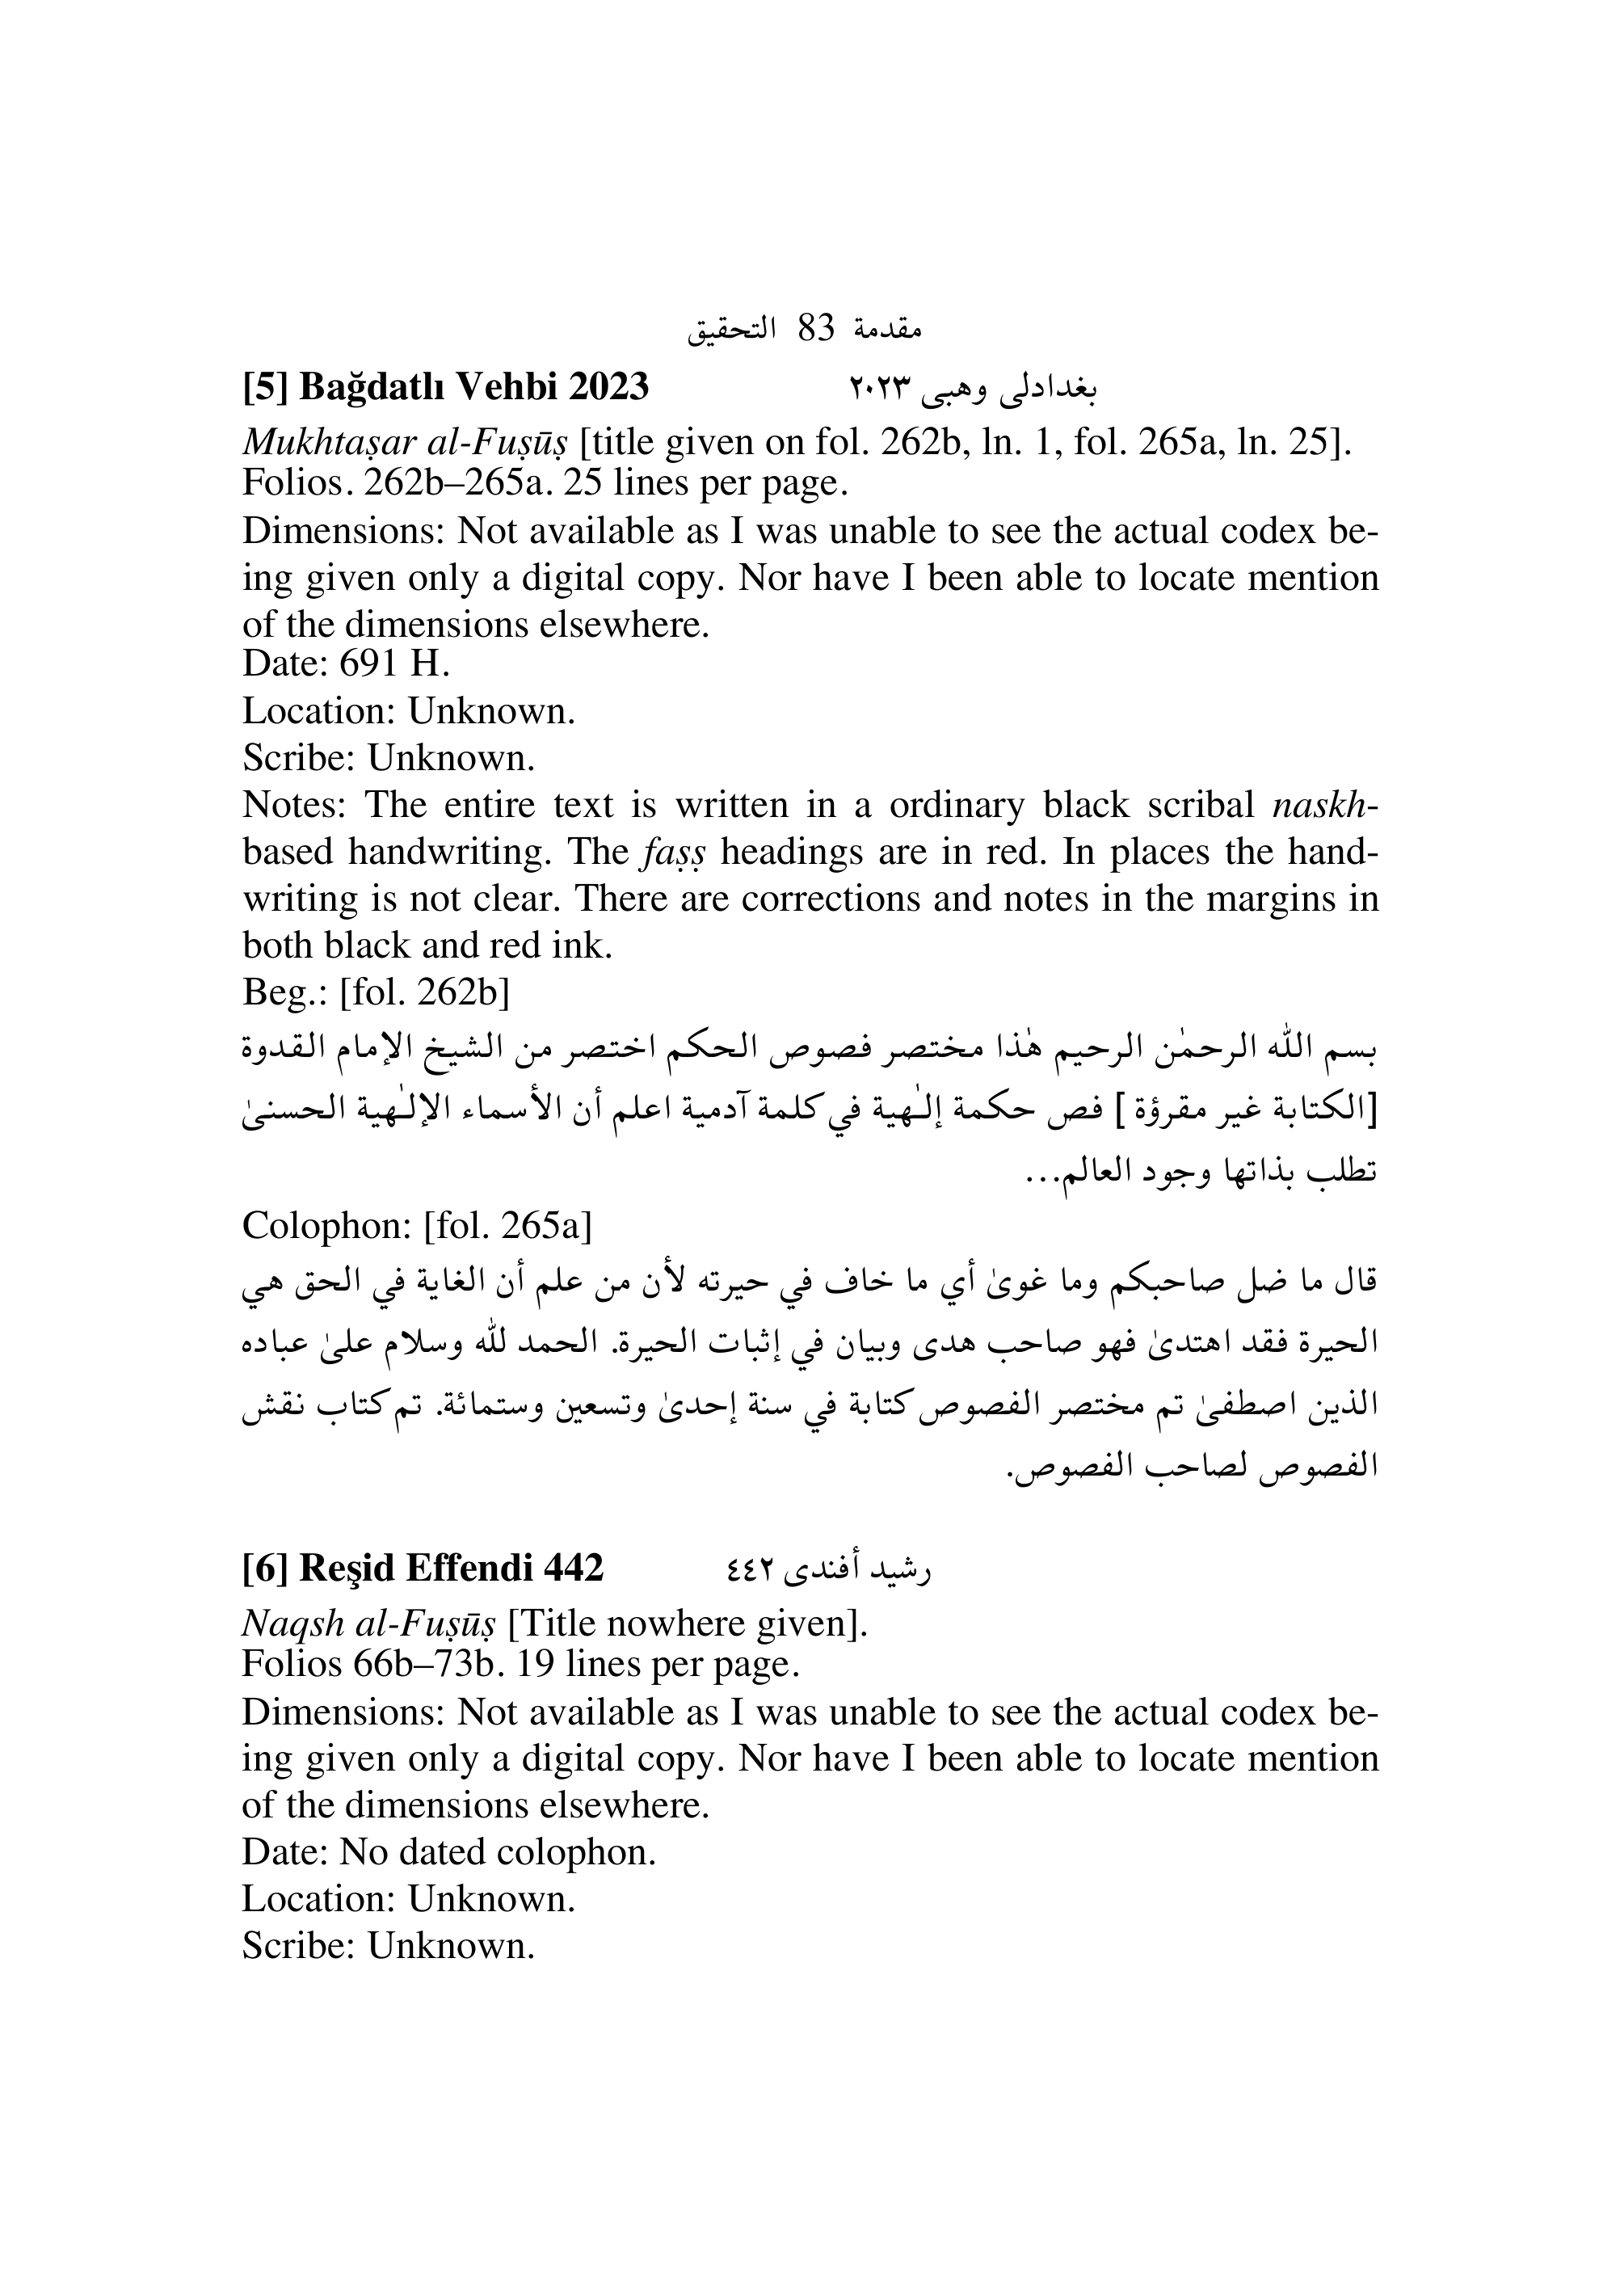 مقدمة 83 التحقيق
[5] Bağdatlı Vehbi 2023 بغدادلى وهبى ٢٠٢٣
Mukhtaṣar al-Fuṣūṣ [title given on fol. 262b, ln. 1, fol. 265a, ln. 25].
Folios. 262b–265a. 25 lines per page.
Dimensions: Not available as I was unable to see the actual codex be-
ing given only a digital copy. Nor have I been able to locate mention
of the dimensions elsewhere.
Date: 691 H.
Location: Unknown.
Scribe: Unknown.
Notes: The entire text is written in a ordinary black scribal naskh-
based handwriting. The faṣṣ headings are in red. In places the hand-
writing is not clear. There are corrections and notes in the margins in
both black and red ink.
Beg.: [fol. 262b]
بسم الله الرحمٰن الرحيم هٰذا مختصر فصوص الحكم اختصر من الشيخ الإمام القدوة
[الكتابة غير مقرؤة ] فص حكمة إلـٰهية في كلمة آدمية اعلم أن الأسماء الإلـٰهية الحسنىٰ
تطلب بذاتها وجود العالم…
Colophon: [fol. 265a]
قال ما ضل صاحبكم وما غوىٰ أي ما خاف في حيرته لأن من علم أن الغاية في الحق هي
الحيرة فقد اهتدىٰ فهو صاحب هدى وبيان في إثبات الحيرة. الحمد لله وسلام علىٰ عباده
الذين اصطفىٰ تم مختصر الفصوص كتابة في سنة إحدىٰ وتسعين وستمائة. تم كتاب نقش
الفصوص لصاحب الفصوص.
[6] Reşid Effendi 442 رشيد أفندى ٤٤٢
Naqsh al-Fuṣūṣ [Title nowhere given].
Folios 66b–73b. 19 lines per page.
Dimensions: Not available as I was unable to see the actual codex be-
ing given only a digital copy. Nor have I been able to locate mention
of the dimensions elsewhere.
Date: No dated colophon.
Location: Unknown.
Scribe: Unknown.